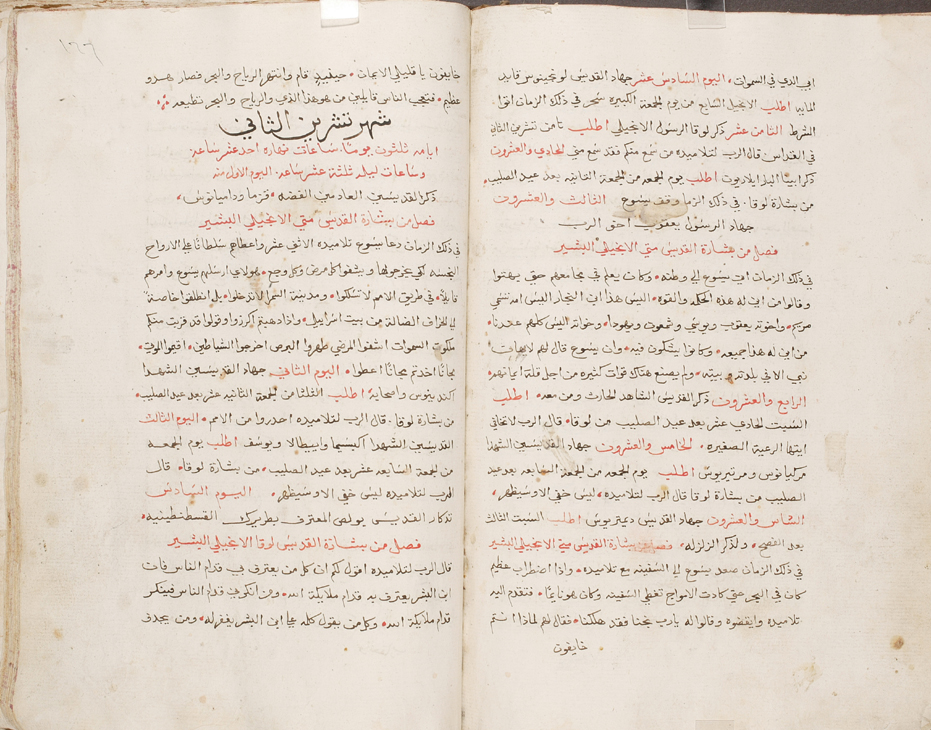 ابي الذي في السموات، اليوم السادس عشر جهاد القديس لونجينوس قايد
المايه اطلب الانجيل السابع من يوم الجمعة الكبيره سحر في ذلك الزمان اتوا
الشرط الثامن عشر ذكر لوقا الرسول الانجيلي اطلب ثامن تشرين الثاني
في القداس قال الرب لتلاميده من سمع منكم فقد سمع مني الحادي والعشرون
ذكر ابينا البار ايلاريون اطلب يوم الجمعه من الجمعة الثانيه بعد عيد الصليب
من بشارة لوقا. في ذلك الزمان وقف يسوع الثالث والعشرون
جهاد الرسول يعقوب اخو الرب
فصل من بشارة القديس متي الانجيلي البشير
في ذلك الزمان اتى يسوع الى وطنه وكان يعلم في مجامعهم حتى بهتوا
وقالوا من اين له هذه الحكمه والقوه اليس هذا ابن النجار اليس امه تسمي
مريم واخوته يعقوب ويوسي وشمعون ويهودا وخواته اليس كلهم عندنا
من اين له هذا جميعه وكانوا يشكون فيه وان يسوع قال لهم لا يهان
نبي الا في بلدته وبيته ولم يصنع هناك قوات كثيره من اجل قلة ايمانهم
الرابع والعشرون ذكر القديس الشاهد الحارث ومن معه اطلب
السبت الحادي عشر بعد عيد الصليب من لوقا قال الرب لا تخافي
ايتها الرعية الصغيره الخامس والعشرون جهاد القديسين الشهدا
مركيانوس ومرتيريوس اطلب يوم الجمعه من الجمعة السابعه بعد عيد
الصليب من بشارة لوقا قال الرب لتلاميده ليس خفي الا وسيظهر
السادس والعشرون جهاد القديس ديمتريوس اطلب السبت الثالث
بعد الفصح ولذكر الزلزله فصل من بشارة القديس متي الانجيلي البشير
في ذلك الزمان صعد يسوع الي السفينه مع تلاميده واذا اضطراب عظيم
كان في البحر حتي كادت الامواج تغطي السفينه وكان هو نايمًا فتقدم اليه
تلاميده وايقضوه وقالوا له يارب نجنا فقد هلكنا فقال لهم لماذا انتم
خايفون
خايفون يا قليلي الايمان حينيد قام وانتهر الرياح والبحر فصار هدو
عظيم فتعجب الناس قايلين من هو هذا الذي الرياح والبحر تطيعه
شهر تشرين الثاني
ايامه ثلثون يومًا، ساعات نهاره احد عشر ساعه
وساعات ليله ثلثة عشر ساعه، اليوم الاول منه
ذكر القديسين العادمي الفضه قزما وداميانوس
فصل من بشارة القديس متي الانجيلي البشير
في ذلك الزمان دعا يسوع تلاميده الاثني عشر واعطاهم سلطانًا علي الارواح
النجسه لكي يخرجوها ويشفوا كل مرض وكل وجع هولاي ارسلهم يسوع وامرهم
قايلًا في طريق الامم لا تسلكوا ومدينة السمرا لا تدخلوا بل انطلقوا خاصة
الي الخراف الضالة من بيت اسراييل واذا ذهبتم اكرزوا وقولوا قد قربت منكم
ملكوت السموات اشفوا المرضي طهروا البرص اخرجوا الشياطين اقيموا الموتي
مجانًا اخدتم مجانًا اعطوا اليوم الثاني جهاد القديسين الشهدا
اكندينوس واصحابه اطلب الثلثا من الجمعة الثانيه عشر بعد عيد الصليب
من بشارة لوقا. قال الرب لتلاميده احدروا من الامم اليوم الثالث
القديسين الشهدا اكبسيما وايبطالا ويوسف اطلب يوم الجمعه
من الجمعة السابعه عشر بعد عيد الصليب من بشارة لوقا قال
الرب لتلاميده ليس خفي الا وسيظهر اليوم السادس
تذكار القديس بولص المعترف بطريرك القسطنطينيه
فصل من بشارة القديس لوقا الانجيلي البشير
قال الرب لتلاميده اقول لكم ان كل من يعترف بي قدام الناس فان
ابن البشر يعترف به قدام ملايكة الله ومن انكرني قدام الناس فينكر
قدام ملايكة الله وكل من يقول كلمه علي ابن البشر يغفر له ومن يجدف